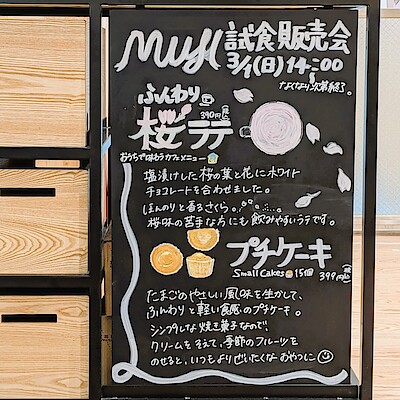 MUJI 試食販売会
3/1(日) 14:00
なくなり次第終了。
ふんわり
桜ラテ
390円
おうちで味わうカフェメニュー
塩漬けした桜の葉と花にホワイト
チョコレートを合わせました。
ほんのりと香るさくら。
桜味の苦手な方にも飲みやすいラテです。
プチケーキ
Small Cakes 15個 399円
たまごのやさしい風味を生かして、
ふんわりと軽い食感のプチケーキ。
シンプルな焼き菓子なので、
クリームをそえて、季節のフルーツを
のせると、いつもよりぜいたくなおやつに